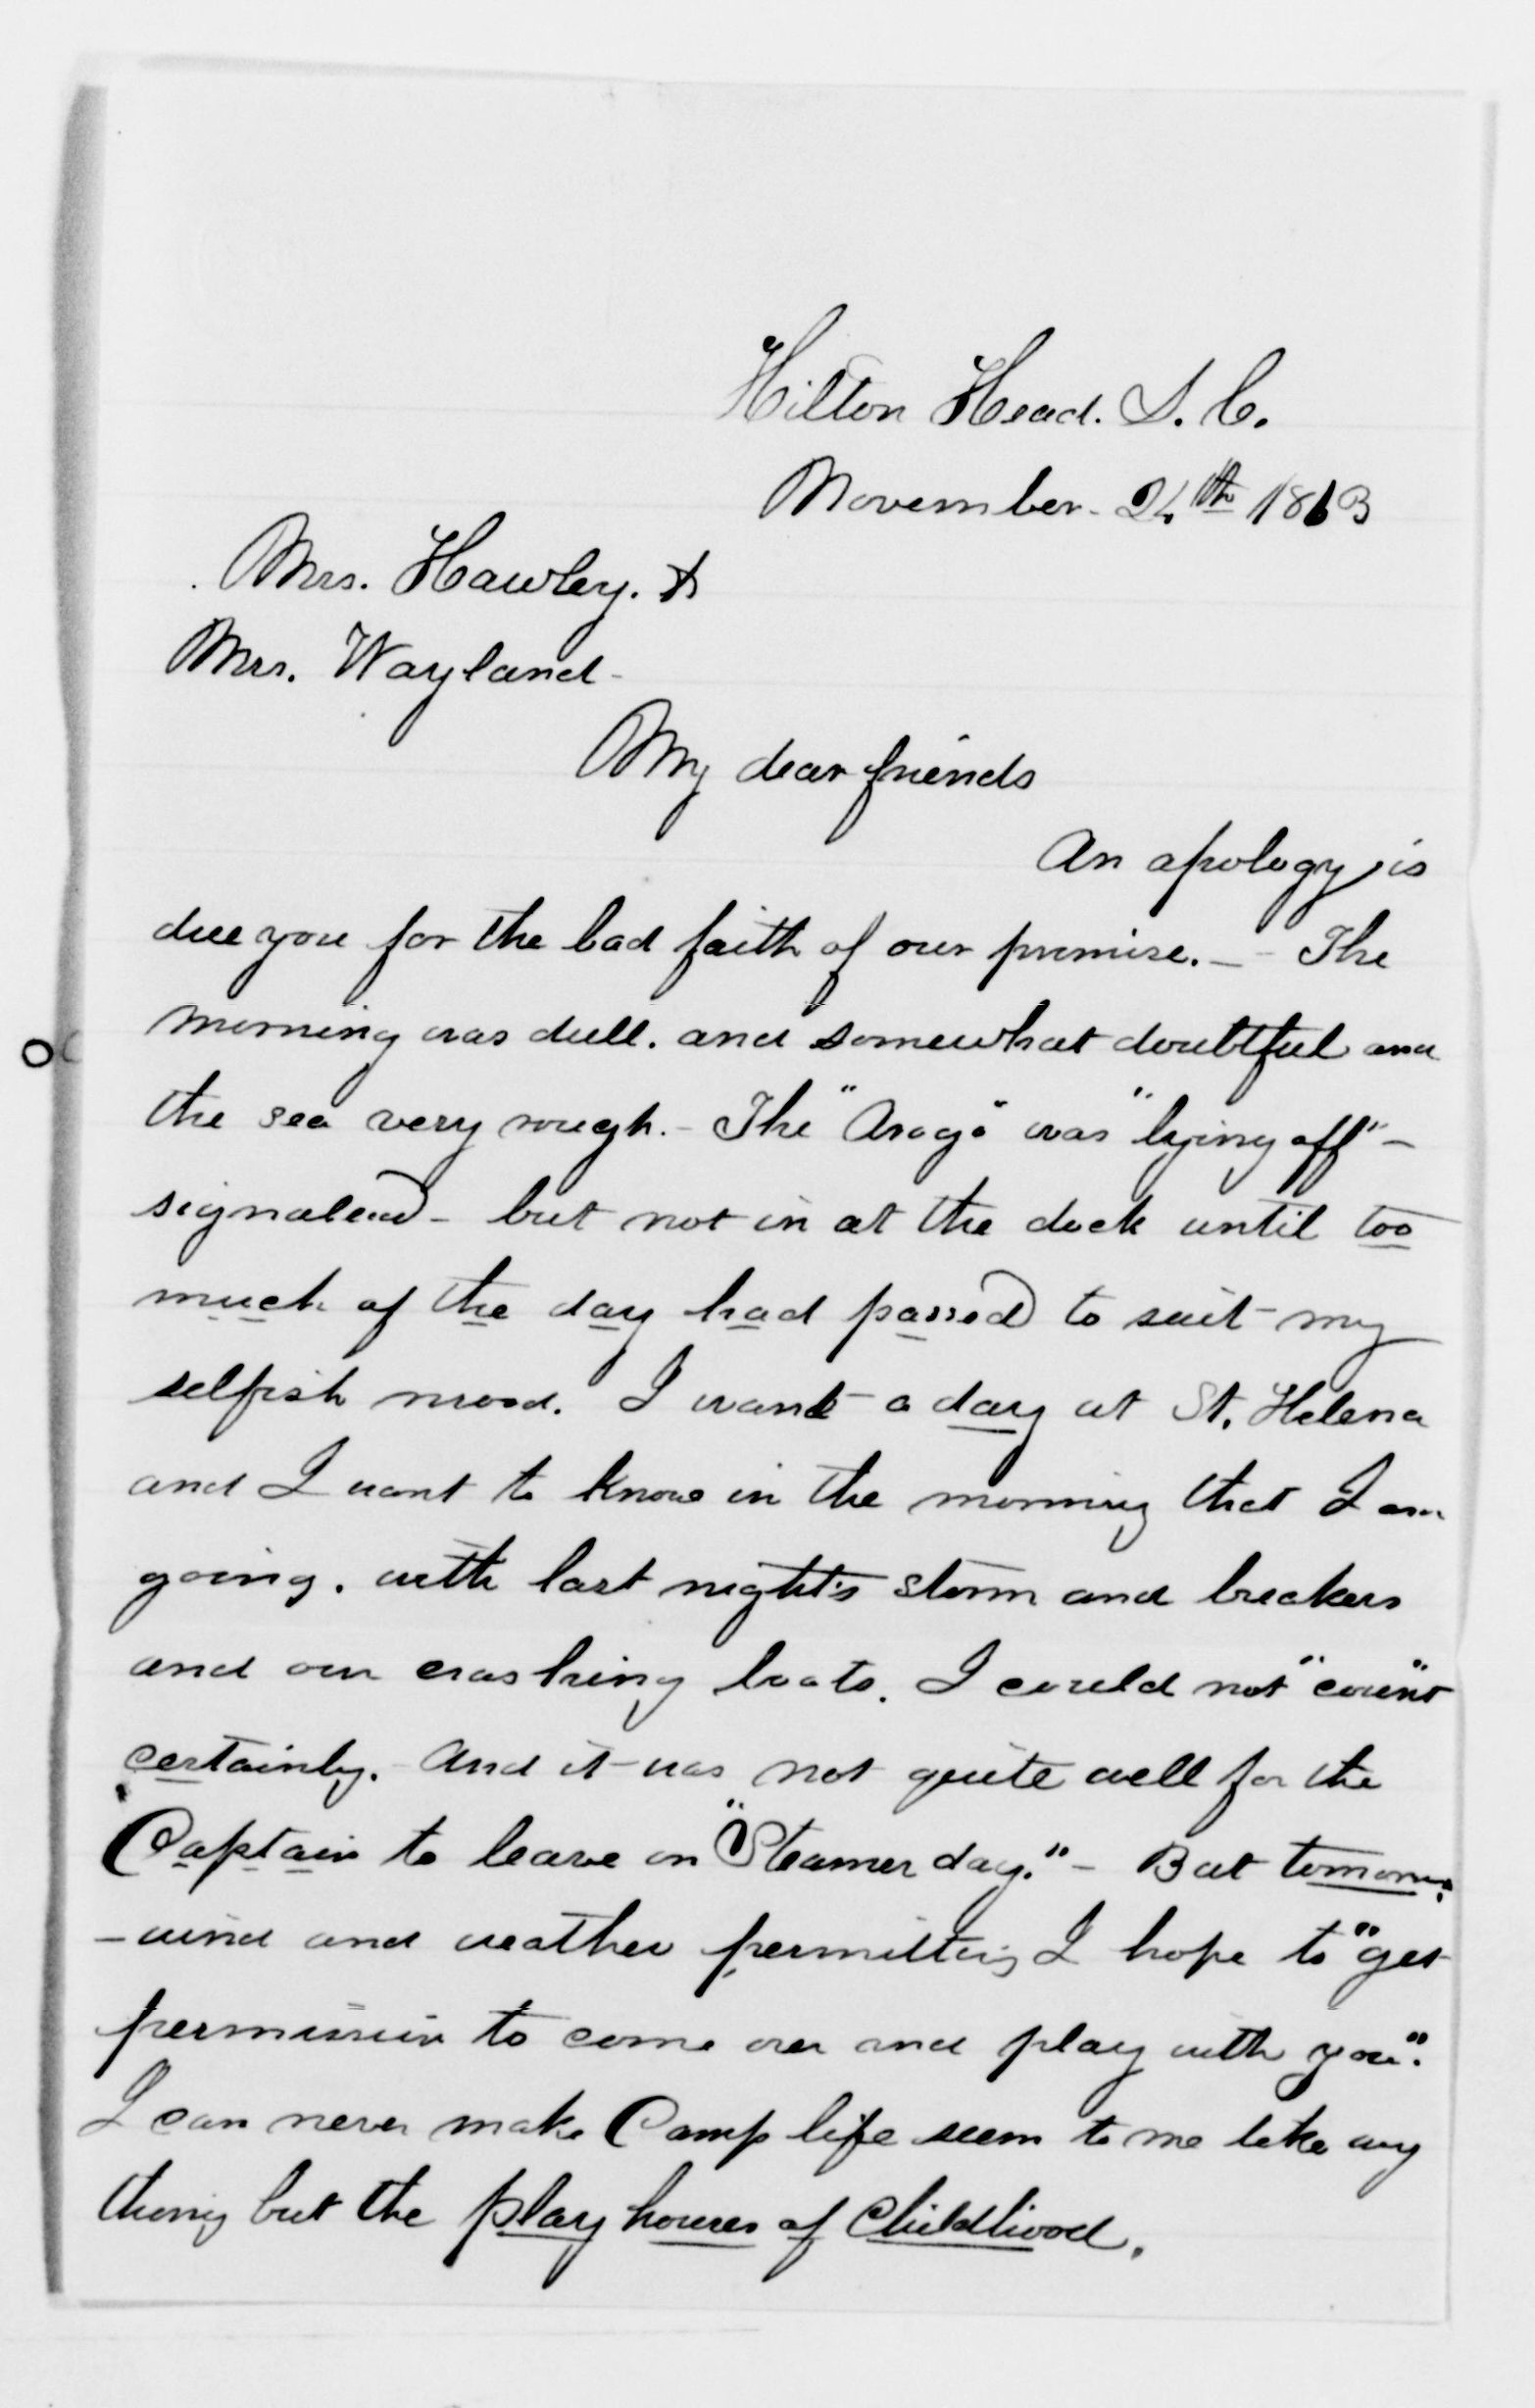 Hilton Head. S. C.
November. 24th 1863
Mrs. Hawley. &
Mrs. Wayland-
My dear friends
An apology is
due you for the bad faith of our promise. - - The
morning was dull. and somewhat doubtful and
the sea very rough. - The "Arago" was "lying off" -
signaled - but not in at the dock until too
much of the day had passed to suit my
selfish mood. I want a day at St. Helena
and I want to know in the morning that I am
going. with last night's storm and breakers
and our crashing boats. I could not "count"
certainly. - And it was not quite well for the
Captain to leave on "Steamer day." - But tomorrow.
- wind and weather permitting I hope to "get
permission to come over and play with you".
I can never make Camp life seem to me like any
thing but the play houses of Childhood.